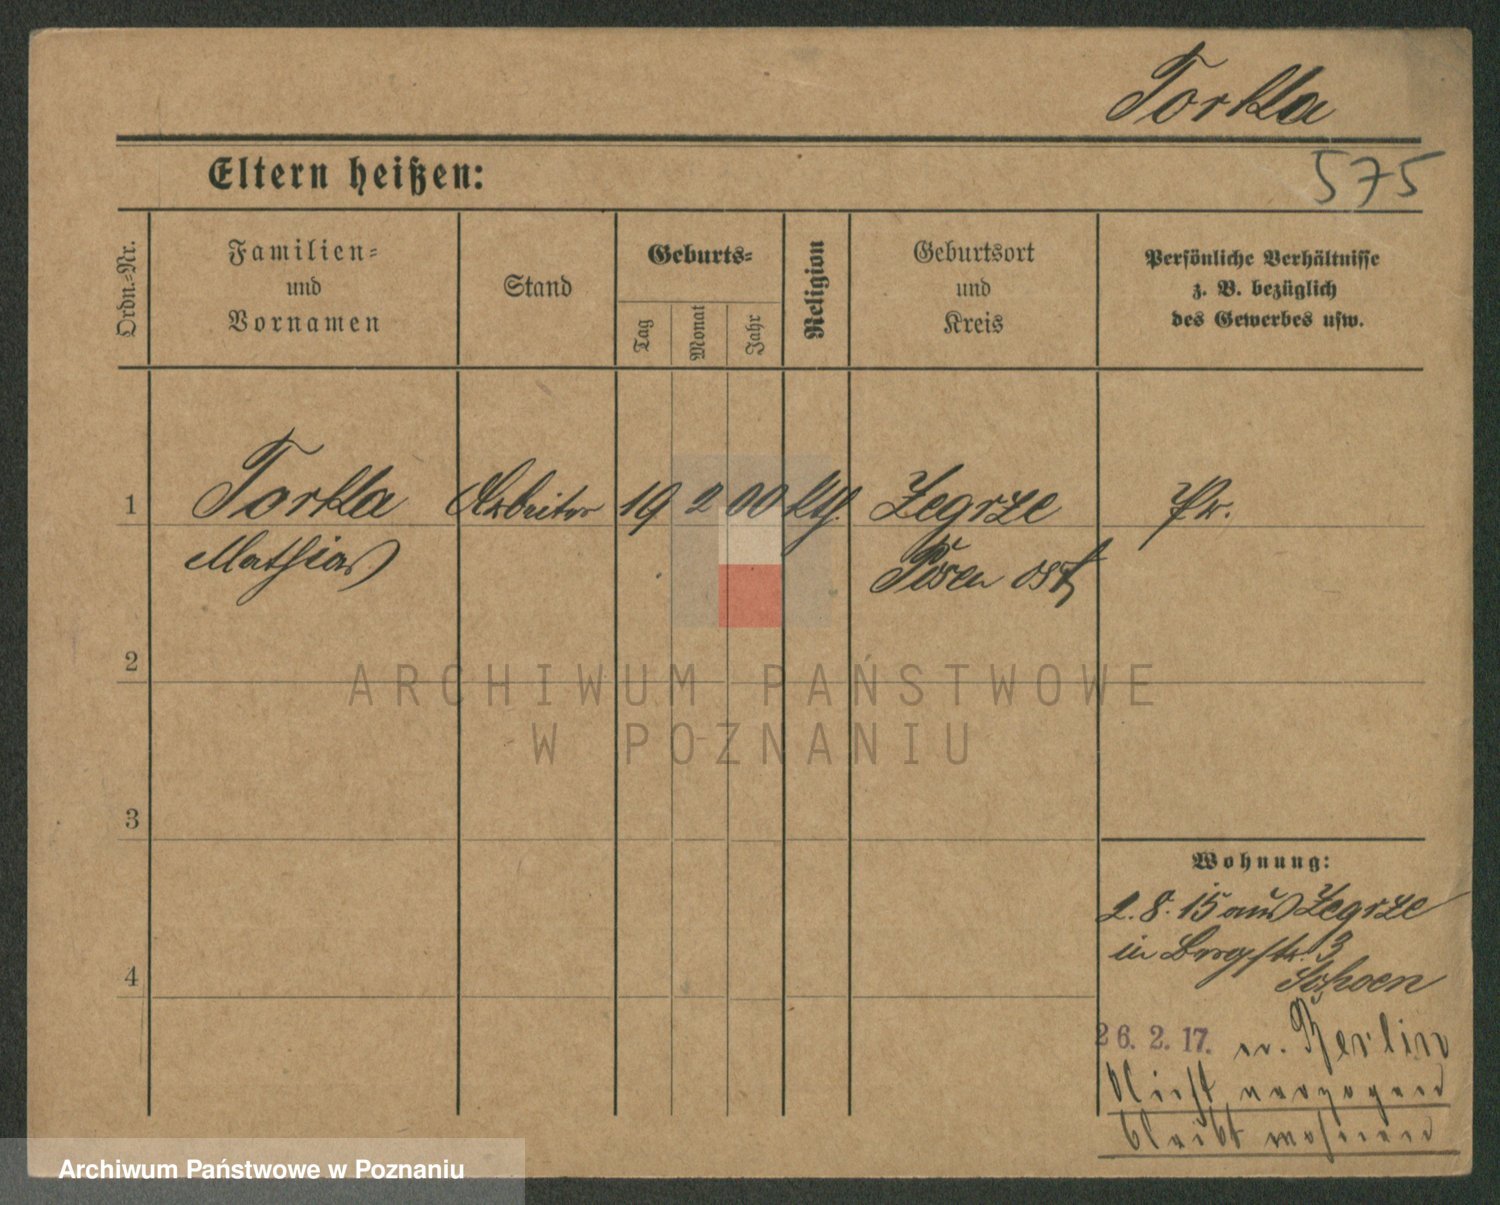 Torkla
Eltern heißen:
575
Ordn.-Nr.
Familien-
und
Vornamen
Stand
Geburts-
Tag
Monat
Jahr
Religion
Geburtsort
und
Kreis
Persönliche Verhältnisse
z. B. bezüglich
des Gewerbes usw.
1 Torkla Arbeiter 19 2 00 kth. Zegrze Pr.
Mathias Posen ost
2
ARCHIWUM PAŃSTWOWE
W POZNANIU
3
Wohnung:
2.8.15 aus Zegrze
in Bergstr. 3
Schoen
4
26. 2. 17. n. Berlin
Nicht verzogen
bleibt wohnen
Archiwum Państwowe w Poznaniu